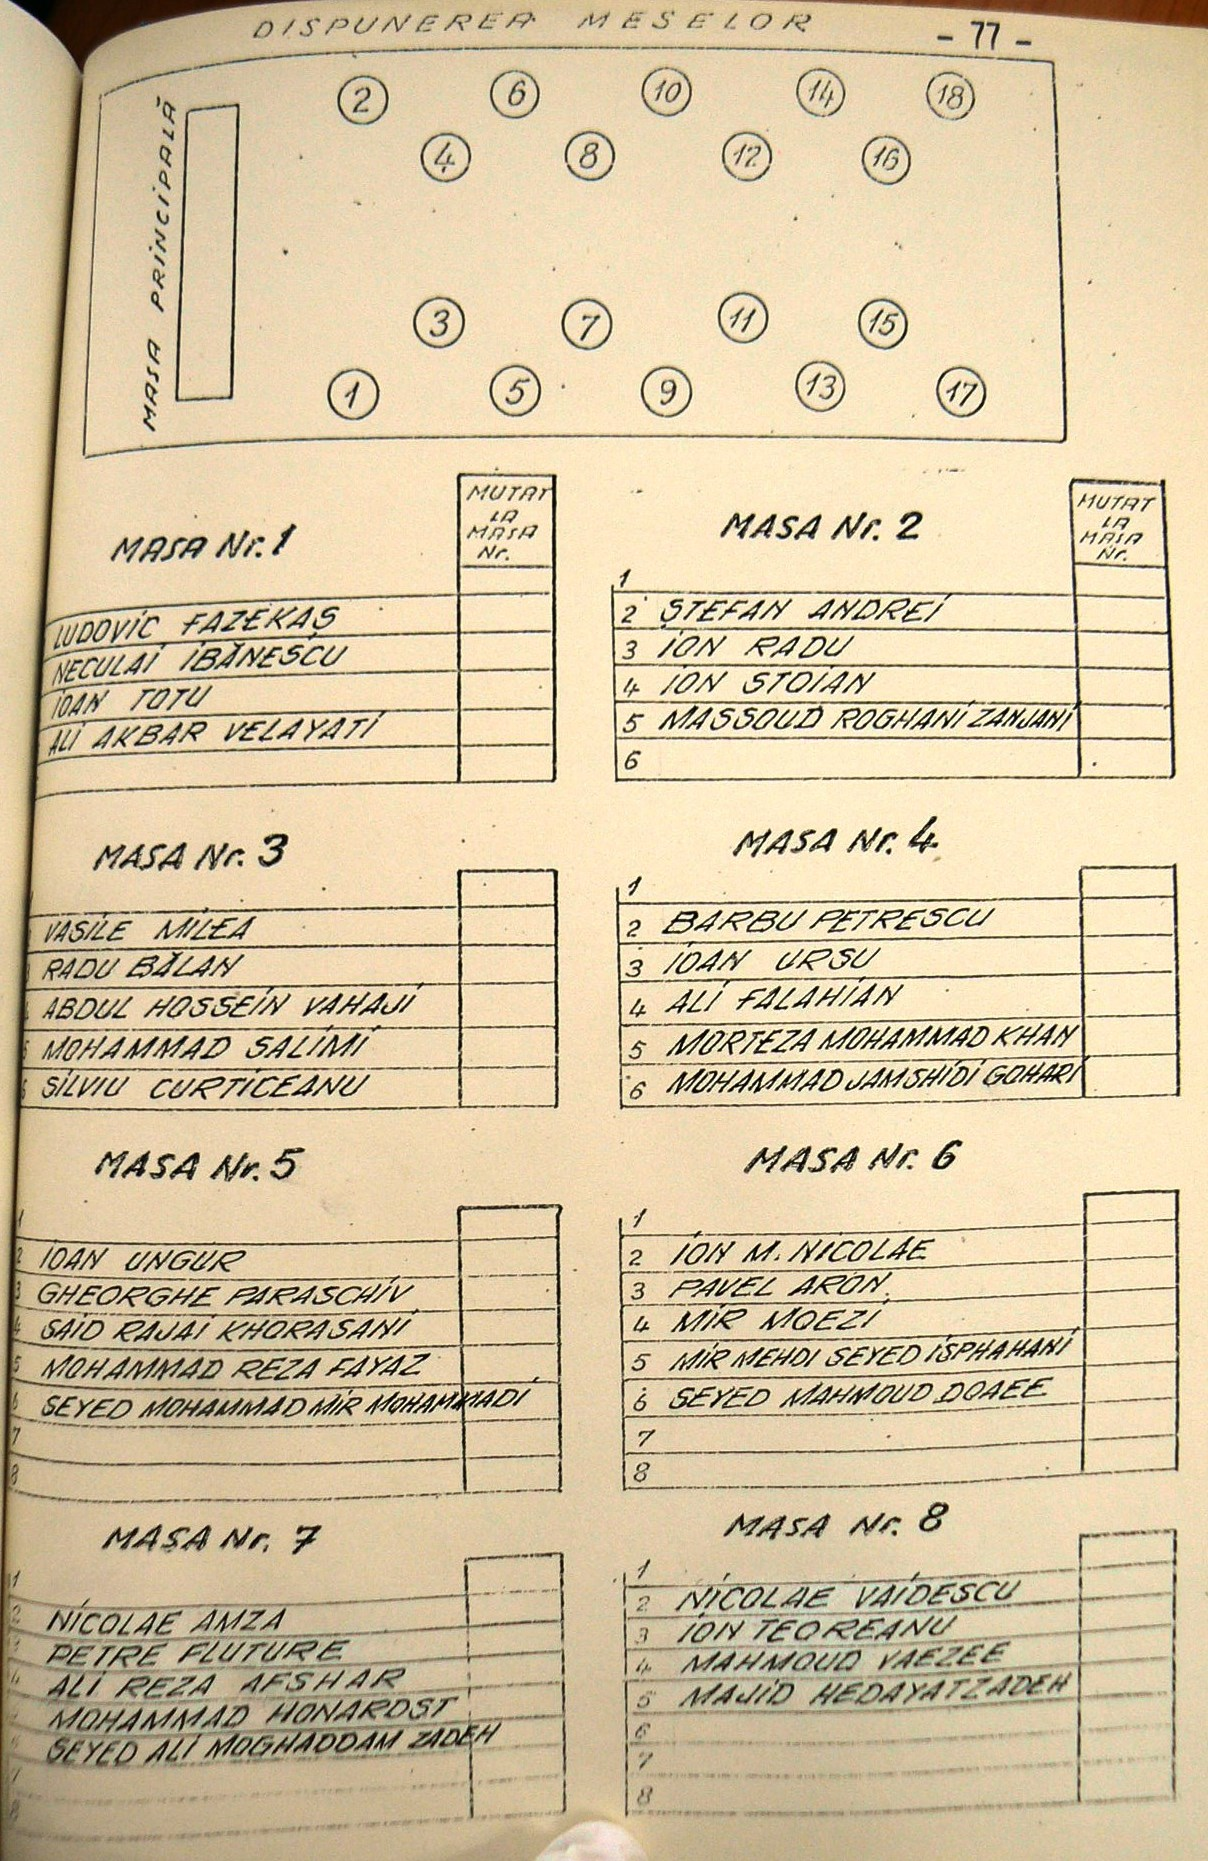 DISPUNEREA MESELOR
- 77 -
MASA PRINCIPALĂ
2 6 10 14 18
4 8 12 16
3 7 11 15
1 5 9 13 17
MASA Nr. 1
MUTAT
LA
MASA
Nr.
LUDOVIC FAZEKAȘ
NECULAI IBĂNESCU
IOAN TOTU
ALI AKBAR VELAYATI
MASA Nr. 2
MUTAT
LA
MASA
Nr.
1
2 ȘTEFAN ANDREI
3 ION RADU
4 ION STOIAN
5 MASSOUD ROGHANI ZANJANI
6
MASA Nr. 3
VASILE MILEA
RADU BĂLAN
ABDUL HOSSEIN VAHAJI
5 MOHAMMAD SALIMI
6 SILVIU CURTICEANU
MASA Nr. 4
1
2 BARBU PETRESCU
3 IOAN URSU
4 ALI FALAHIAN
5 MORTEZA MOHAMMAD KHAN
6 MOHAMMAD JAMSHIDI GOHARI
MASA Nr. 5
1
2 IOAN UNGUR
3 GHEORGHE PARASCHIV
4 SAID RAJAI KHORASANI
5 MOHAMMAD REZA FAYAZ
6 SEYED MOHAMMAD MIR MOHAMMADI
7
8
MASA Nr. 6
1
2 ION M. NICOLAE
3 PAVEL ARON
4 MIR MOEZI
5 MIR MEHDI SEYED ISPHAHANI
6 SEYED MAHMOUD DOAEE
7
8
MASA Nr. 7
1
2 NICOLAE AMZA
3 PETRE FLUTURE
4 ALI REZA AFSHAR
MOHAMMAD HONARDST
SEYED ALI MOGHADDAM ZADEH
7
8
MASA Nr. 8
1
2 NICOLAE VAIDESCU
3 ION TEOREANU
4 MAHMOUD VAEZEE
5 MAJID HEDAYATZADEH
6
7
8